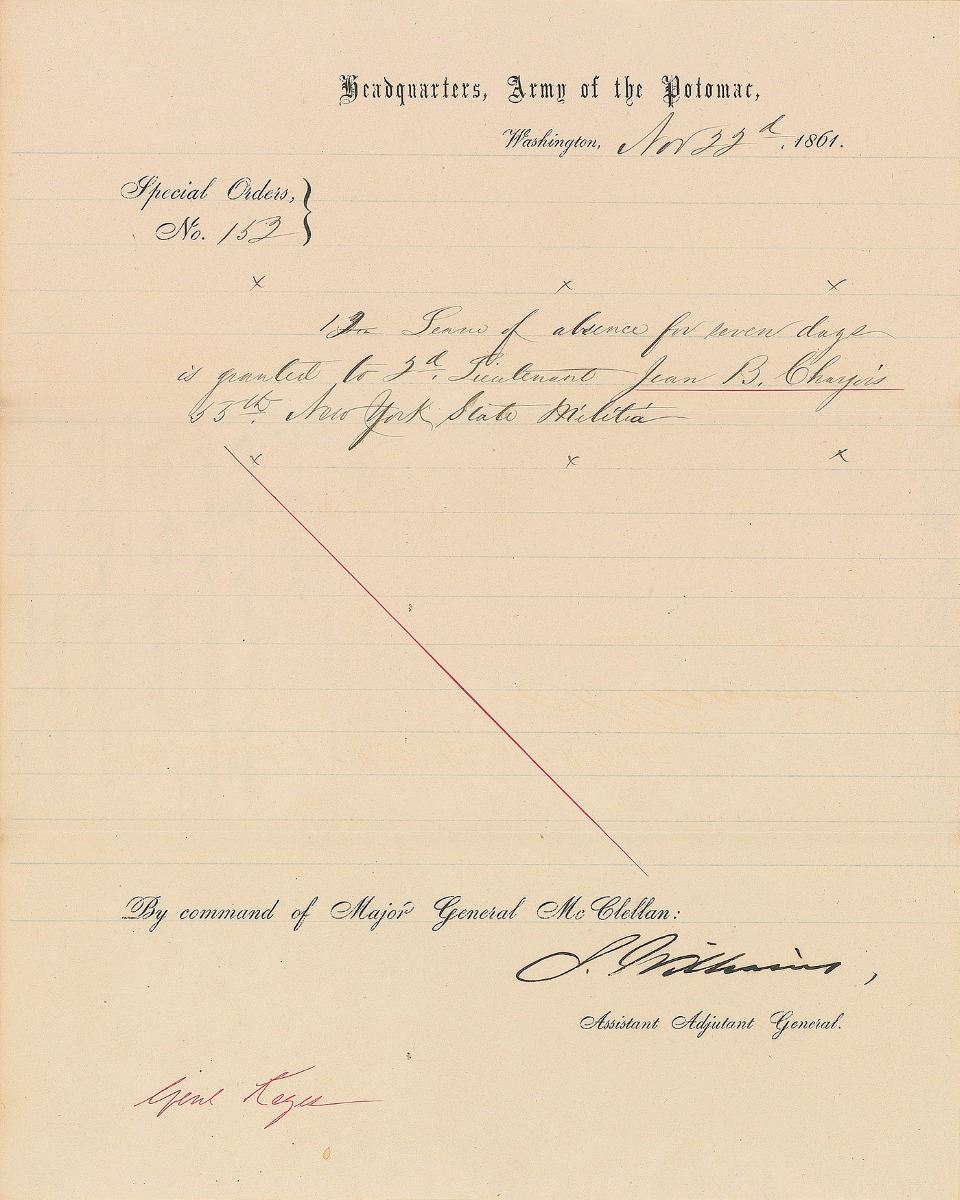 Headquarters, Army of the Potomac,
Washington, Nov 22d, 1861.
Special Orders,
No. 152
x x x
12 Leave of absence for seven days
is granted to 2d. Lieutenant Jean B.
55th. New York State Militia
x x x
By command of Major General McClellan:
S. Williams,
Assistant Adjutant General.
Genl Keyes